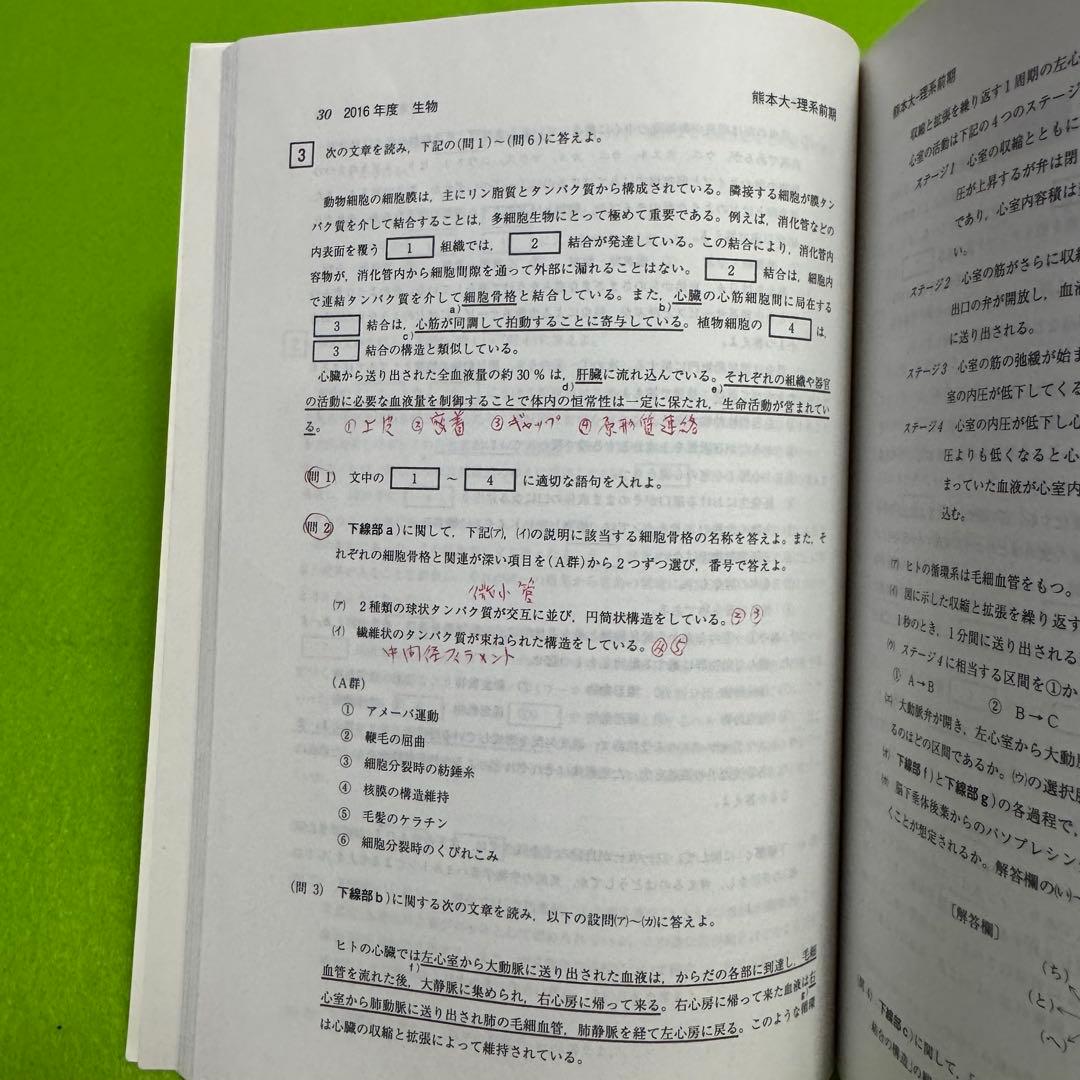 30 2016年度 生物
熊本大-理系前期
3 次の文章を読み，下記の(問1)～(問6)に答えよ。
動物細胞の細胞膜は，主にリン脂質とタンパク質から構成されている。隣接する細胞が膜タン
パク質を介して結合することは，多細胞生物にとって極めて重要である。例えば，消化管などの
内表面を覆う 1 組織では， 2 結合が発達している。この結合により，消化管内
容物が，消化管内から細胞間隙を通って外部に漏れることはない。 2 結合は，細胞内
で連結タンパク質を介して細胞骨格と結合している。また，心臓の心筋細胞間に局在する
a) b)
3 結合は，心筋が同調して拍動することに寄与している。植物細胞の 4 は，
c)
3 結合の構造と類似している。
心臓から送り出された全血液量の約30％は，肝臓に流れ込んでいる。それぞれの組織や器官
d) e)
の活動に必要な血液量を制御することで体内の恒常性は一定に保たれ，生命活動が営まれてい
る。 ①上皮 ②密着 ③ギャップ ④原形質連絡
(問1) 文中の 1 ～ 4 に適切な語句を入れよ。
(問2) 下線部a)に関して，下記(ア)，(イ)の説明に該当する細胞骨格の名称を答えよ。また，そ
れぞれの細胞骨格と関連が深い項目を(A群)から2つずつ選び，番号で答えよ。
微小管
(ア) 2種類の球状タンパク質が交互に並び，円筒状構造をしている。②③
(イ) 繊維状のタンパク質が束ねられた構造をしている。④⑤
中間径フィラメント
(A群)
① アメーバ運動
② 鞭毛の屈曲
③ 細胞分裂時の紡錘糸
④ 核膜の構造維持
⑤ 毛髪のケラチン
⑥ 細胞分裂時のくびれこみ
(問3) 下線部b)に関する次の文章を読み，以下の設問(ア)～(カ)に答えよ。
ヒトの心臓では左心室から大動脈に送り出された血液は，からだの各部に到達し，毛細
f)
血管を流れた後，大静脈に集められ，右心房に帰って来る。右心房に帰って来た血液は右
g)
心室から肺動脈に送り出され肺の毛細血管，肺静脈を経て左心房に戻る。このような循環
は心臓の収縮と拡張によって維持されている。
熊本大-理系前期
収縮と拡張を繰り返す1周期の左心
心室の活動は下記の4つのステージ
ステージ1 心室の収縮とともに
圧が上昇するが弁は閉
であり，心室内容積は
い。
ステージ2 心室の筋がさらに収縮
出口の弁が開放し，血液
に送り出される。
ステージ3 心室の筋の弛緩が始ま
室の内圧が低下してくる
ステージ4 心室の内圧が低下し心
圧よりも低くなると心
まっていた血液が心室内
込む。
(ア) ヒトの循環系は毛細血管をもつ。
(イ) 図に示した収縮と拡張を繰り返す
1秒のとき，1分間に送り出される
(ウ) ステージ4に相当する区間を①か
① A→B
② B→C
(エ) 大動脈弁が開き，左心室から大動
るのはどの区間であるか。(ウ)の選択
(オ) 下線部f)と下線部g)の各過程で，
(カ) 脳下垂体後葉からのバソプレシン
くことが想定されるか。解答欄の(い)
［解答欄］
(ち)
(と)
(へ)
(問4) 下線部c)に関して，
結合の構造」の